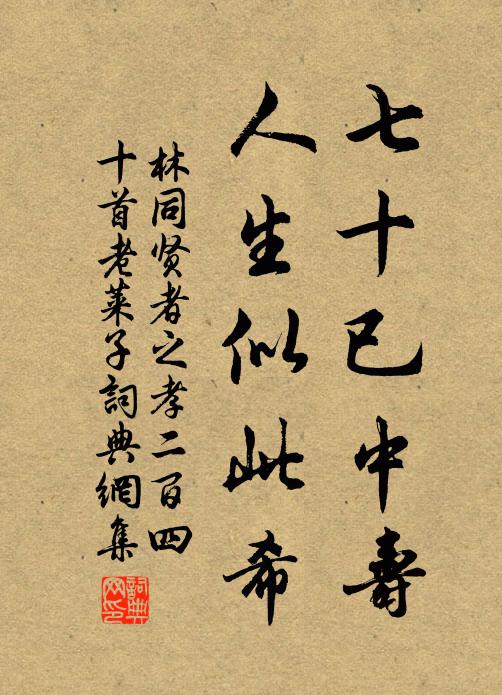 七十已中壽
人生似此希
林同贤者之孝二百四
十首老莱子詞典網集
詞典网印